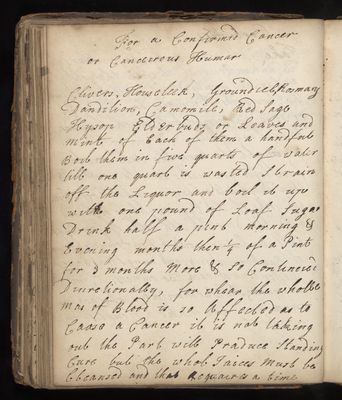 For a Confirmed Cancer
or Cancerous Humar
Clivers, Howseleek, Groundsel, Rosmary
Dandilion, Camomile, Red Sage
Hysop Elderbuds or Leaves and
mint of Each of them a handfull
Boil them in five quarts of water
till one quart is wasted Strain
off the Liquor and boil it upv
with one pound of Loaf Sugar
Drink half a pint morning &
Evening months then 1/4 of a Pint
for 3 months More & so Continued
Diurctionally, for whear the wholle
Mas of Blood is so Affected as to
Cause a Cancer it is not taking
out the Part will Produce Standing
Cure but the whol Juices Must be
Cleansed and that Requaires a time